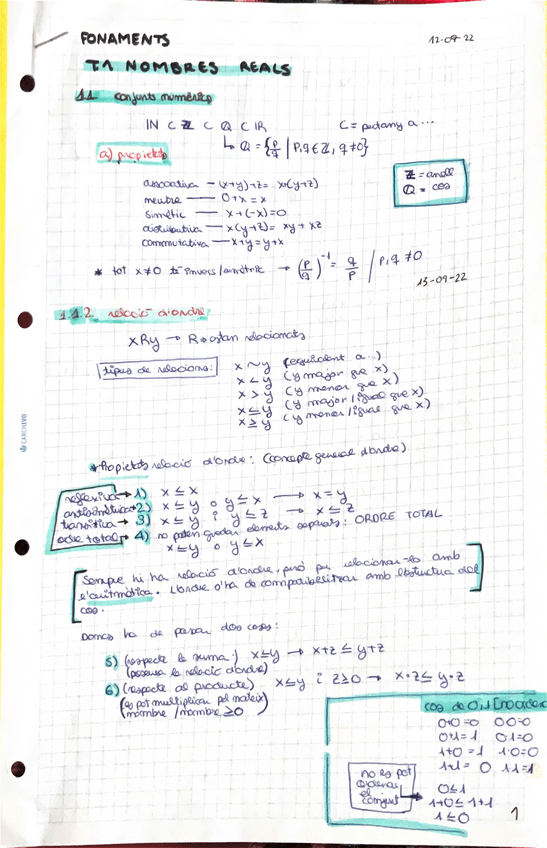 FONAMENTS
12-09-22
T.1 NOMBRES REALS
1.1. conjunts numèrics
IN C Z C Q C IR
C = pertany a ...
↳ Q = {p/q | p,q ∈ Z, q ≠ 0}
a) propietats
Z = anell
Q = cos
associativa — (x+y)+z = x+(y+z)
neutre — 0+x = x
simètric — x+(-x)=0
distributiva — x(y+z) = xy + xz
commutativa — x+y = y+x
* tot x≠0 té invers/simètric → (p/q)⁻¹ = q/p / p,q ≠ 0
13-09-22
1.1.2 relació d'ordre:
xRy → R → estan relacionats
tipus de relacions:
x ~ y (equivalent a...)
x < y (y major que x)
x > y (y menor que x)
x ≤ y (y major/igual que x)
x ≥ y (y menor/igual que x)
CARCHIVO
* Propietats relació d'ordre: (concepte general d'ordre)
reflexiva → 1) x ≤ x
antisimètrica → 2) x ≤ y o y ≤ x → x = y
transitiva → 3) x ≤ y i y ≤ z → x ≤ z
ordre total → 4) no poten quedar elements separats: ORDRE TOTAL
x ≤ y o y ≤ x
Sempre hi ha relació d'ordre, però per relacionar-lo amb
l'aritmètica. L'ordre s'ha de compatibilitzar amb l'estructura del
cos.
Doncs ha de passar dos coses:
5) (respecte la suma:) x≤y → x+z ≤ y+z
(preserva la relació d'ordre)
6) (respecte al producte) x≤y i z≥0 → x·z ≤ y·z
(es pot multiplicar pel mateix)
(nombre/nombre ≥0)
cos de 0,1
0+0=0 0·0=0
0+1=1 0·1=0
1+0=1 1·0=0
1+1=0 1·1=1
no es pot
ordenar
el
conjunt
0≤1
1+0≤1+1
1≤0
1